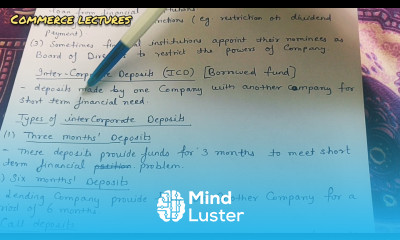 COMMERCE LECTURES
loan from financial institutions
restrictions (eg restriction on dividend
payment)
(3) Sometimes institutions appoint their nominees as
Board of to restrict the powers of Company
Inter-Corporate Deposits (ICD) [Borrowed fund]
- deposits made by one Company with another Company for
short term financial need.
Types of interCorporate Deposits
(1) Three months' Deposits
- These deposits provide funds for 3 months to meet short
term financial position problem.
) Six months' Deposits
Lending Company provide another Company for a
of 6 months
Call deposits
Mind
Luster